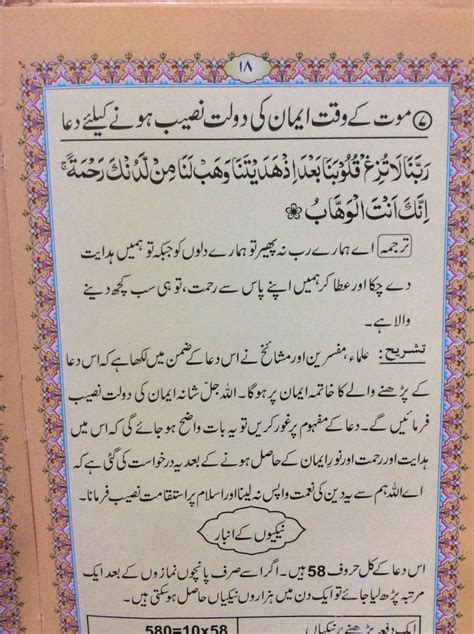 ۱۸
۷ موت کے وقت ایمان کی دولت نصیب ہونے کیلئے دعا
رَبَّنَا لَا تُزِغْ قُلُوْبَنَا بَعْدَ اِذْ هَدَيْتَنَا وَهَبْ لَنَا مِنْ لَّدُنْكَ رَحْمَةً ۚ
اِنَّكَ اَنْتَ الْوَهَّابُ
ترجمہ اے ہمارے رب نہ پھیر تو ہمارے دلوں کو جبکہ تو ہمیں ہدایت
دے چکا اور عطا کر ہمیں اپنے پاس سے رحمت، تو ہی سب کچھ دینے
والا ہے۔
تشریح: علماء مفسرین اور مشائخ نے اس دعا کے ضمن میں لکھا ہے کہ اس دعا
کے پڑھنے والے کا خاتمہ ایمان پر ہوگا۔ اللہ جلّ شانہ ایمان کی دولت نصیب
فرمائیں گے۔ دعا کے مفہوم پر غور کریں تو یہ بات واضح ہو جائے گی کہ اس میں
ہدایت اور رحمت اور نورِ ایمان کے حاصل ہونے کے بعد یہ درخواست کی گئی ہے کہ
اے اللہ ہم سے یہ دین کی نعمت واپس نہ لینا اور اسلام پر استقامت نصیب فرمانا۔
نیکیوں کے انبار
اس دعا کے کل حروف 58 ہیں۔ اگر اسے صرف پانچوں نمازوں کے بعد ایک
مرتبہ پڑھ لیا جائے تو ایک دن میں ہزاروں نیکیاں حاصل ہوسکتی ہیں۔
ایک دفعہ پڑھنے پر نیکیاں 580=10x58